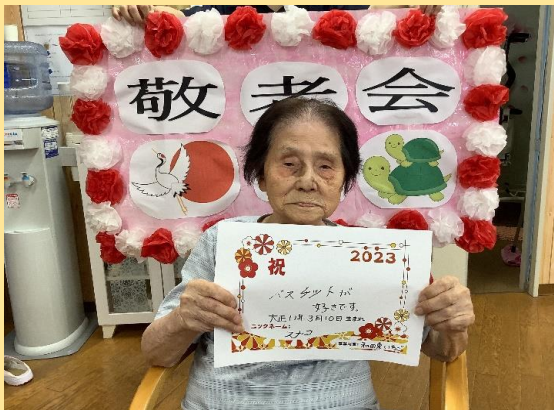 敬老会
祝
2023
バスケットが
好きです。
大正11年3月10日生まれ
ニックネーム：
スナコ